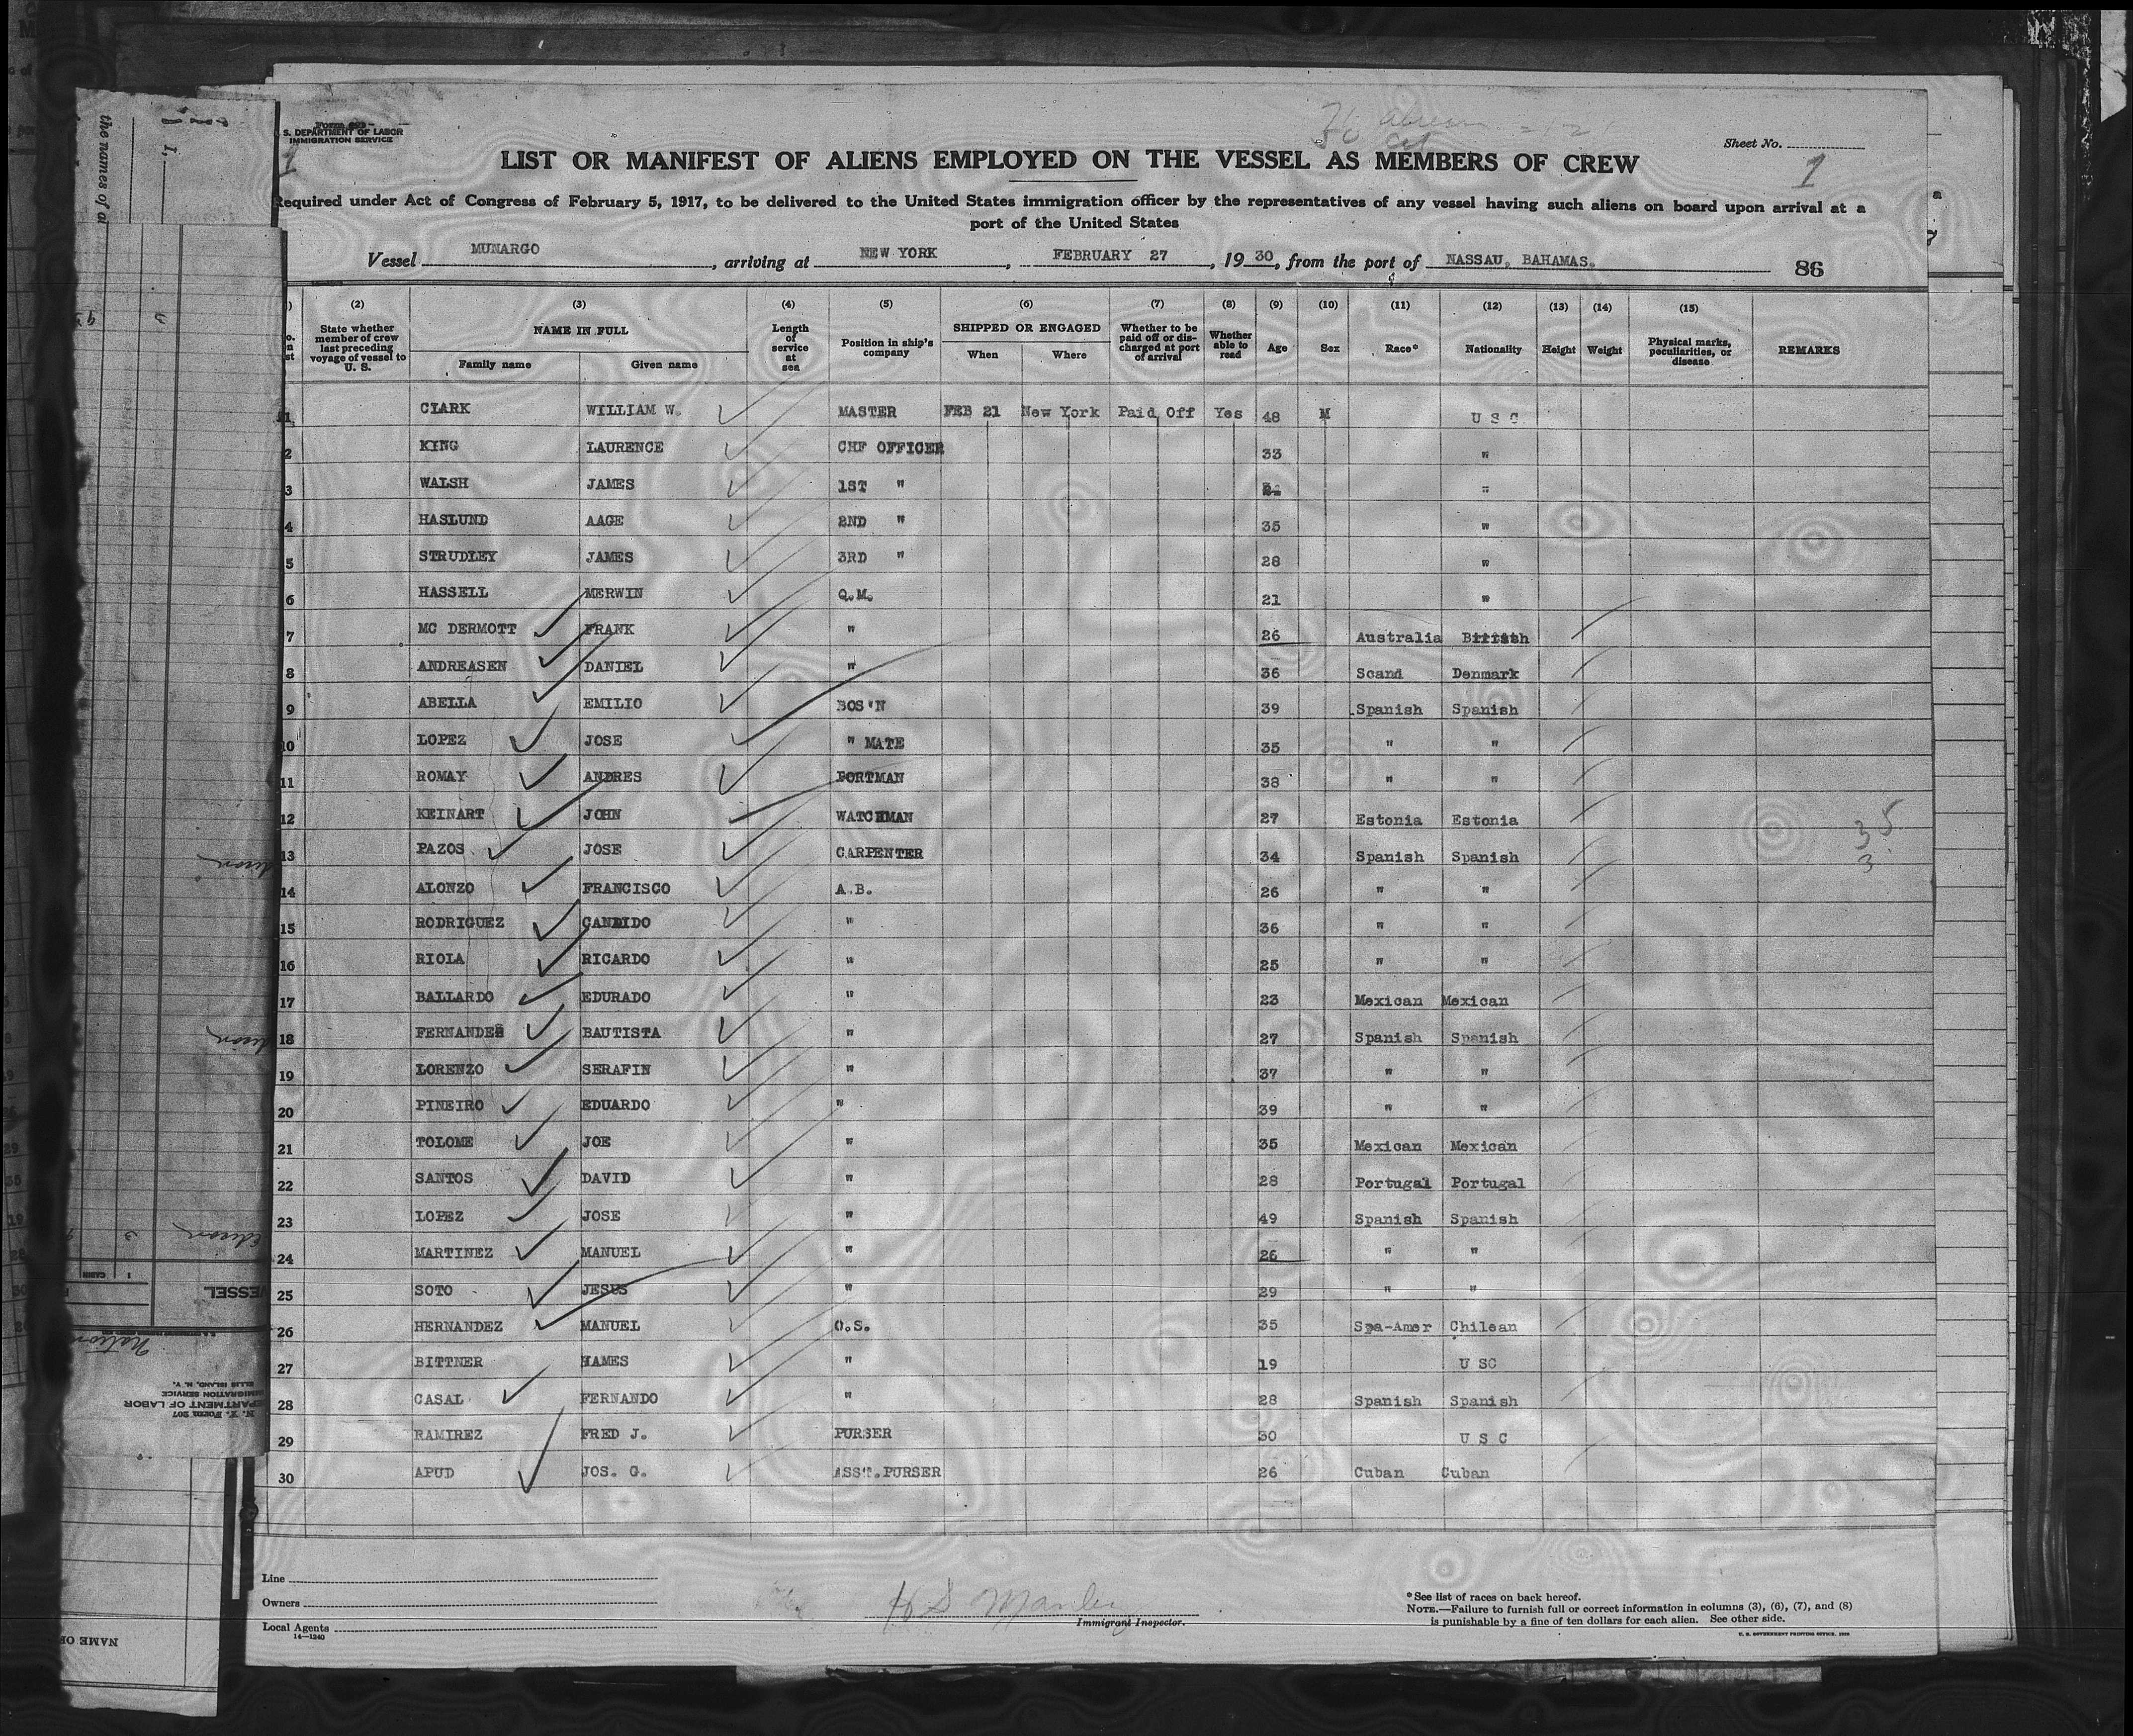 U. S. DEPARTMENT OF LABOR
IMMIGRATION SERVICE
Sheet No. 1
LIST OR MANIFEST OF ALIENS EMPLOYED ON THE VESSEL AS MEMBERS OF CREW
Required under Act of Congress of February 5, 1917, to be delivered to the United States immigration officer by the representatives of any vessel having such aliens on board upon arrival at a
port of the United States
Vessel MUNARGO, arriving at NEW YORK, FEBRUARY 27, 1930, from the port of NASSAU, BAHAMAS.
86
(2) (3) (4) (5) (6) (7) (8) (9) (10) (11) (12) (13) (14) (15)
State whether member of crew last preceding voyage of vessel to U. S. NAME IN FULL Family name Given name Length of service at sea Position in ship's company SHIPPED OR ENGAGED When Where Whether to be paid off or discharged at port of arrival Whether able to read Age Sex Race* Nationality Height Weight Physical marks, peculiarities, or disease REMARKS
1 CLARK WILLIAM W. MASTER FEB 21 New York Paid Off Yes 48 M U S C
2 KING LAURENCE CHF OFFICER 33 "
3 WALSH JAMES 1ST " "
4 HASLUND AAGE 2ND " 35 "
5 STRUDLEY JAMES 3RD " 28 "
6 HASSELL MERWIN Q.M. 21 "
7 MC DERMOTT FRANK " 26 Australia British
8 ANDREASEN DANIEL " 36 Scand Denmark
9 ABELLA EMILIO BOS'N 39 Spanish Spanish
10 LOPEZ JOSE " MATE 35 " "
11 ROMAY ANDRES PORTMAN 38 " "
12 KEINART JOHN WATCHMAN 27 Estonia Estonia
13 PAZOS JOSE CARPENTER 34 Spanish Spanish
14 ALONZO FRANCISCO A.B. 26 " "
15 RODRIGUEZ CANDIDO " 36 " "
16 RIOLA RICARDO " 25 " "
17 BALLARDO EDURADO " 23 Mexican Mexican
18 FERNANDES BAUTISTA " 27 Spanish Spanish
19 LORENZO SERAFIN " 37 " "
20 PINEIRO EDUARDO " 39 " "
21 TOLOME JOE " 35 Mexican Mexican
22 SANTOS DAVID " 28 Portugal Portugal
23 LOPEZ JOSE " 49 Spanish Spanish
24 MARTINEZ MANUEL " 26 " "
25 SOTO JESUS " 29 " "
26 HERNANDEZ MANUEL O.S. 35 Spa-Amer Chilean
27 BITTNER HAMES " 19 U SC
28 CASAL FERNANDO " 28 Spanish Spanish
29 RAMIREZ FRED J. PURSER 30 U S C
30 APUD JOS. G. ASST.PURSER 26 Cuban Cuban
35
3
Line
Owners
Local Agents
14—1240
Immigrant Inspector.
* See list of races on back hereof.
NOTE.—Failure to furnish full or correct information in columns (3), (6), (7), and (8)
is punishable by a fine of ten dollars for each alien. See other side.
the names of al
I,
VESSEL
N. Y. Form 207
DEPARTMENT OF LABOR
IMMIGRATION SERVICE
ELLIS ISLAND, N. Y.
NAME OF